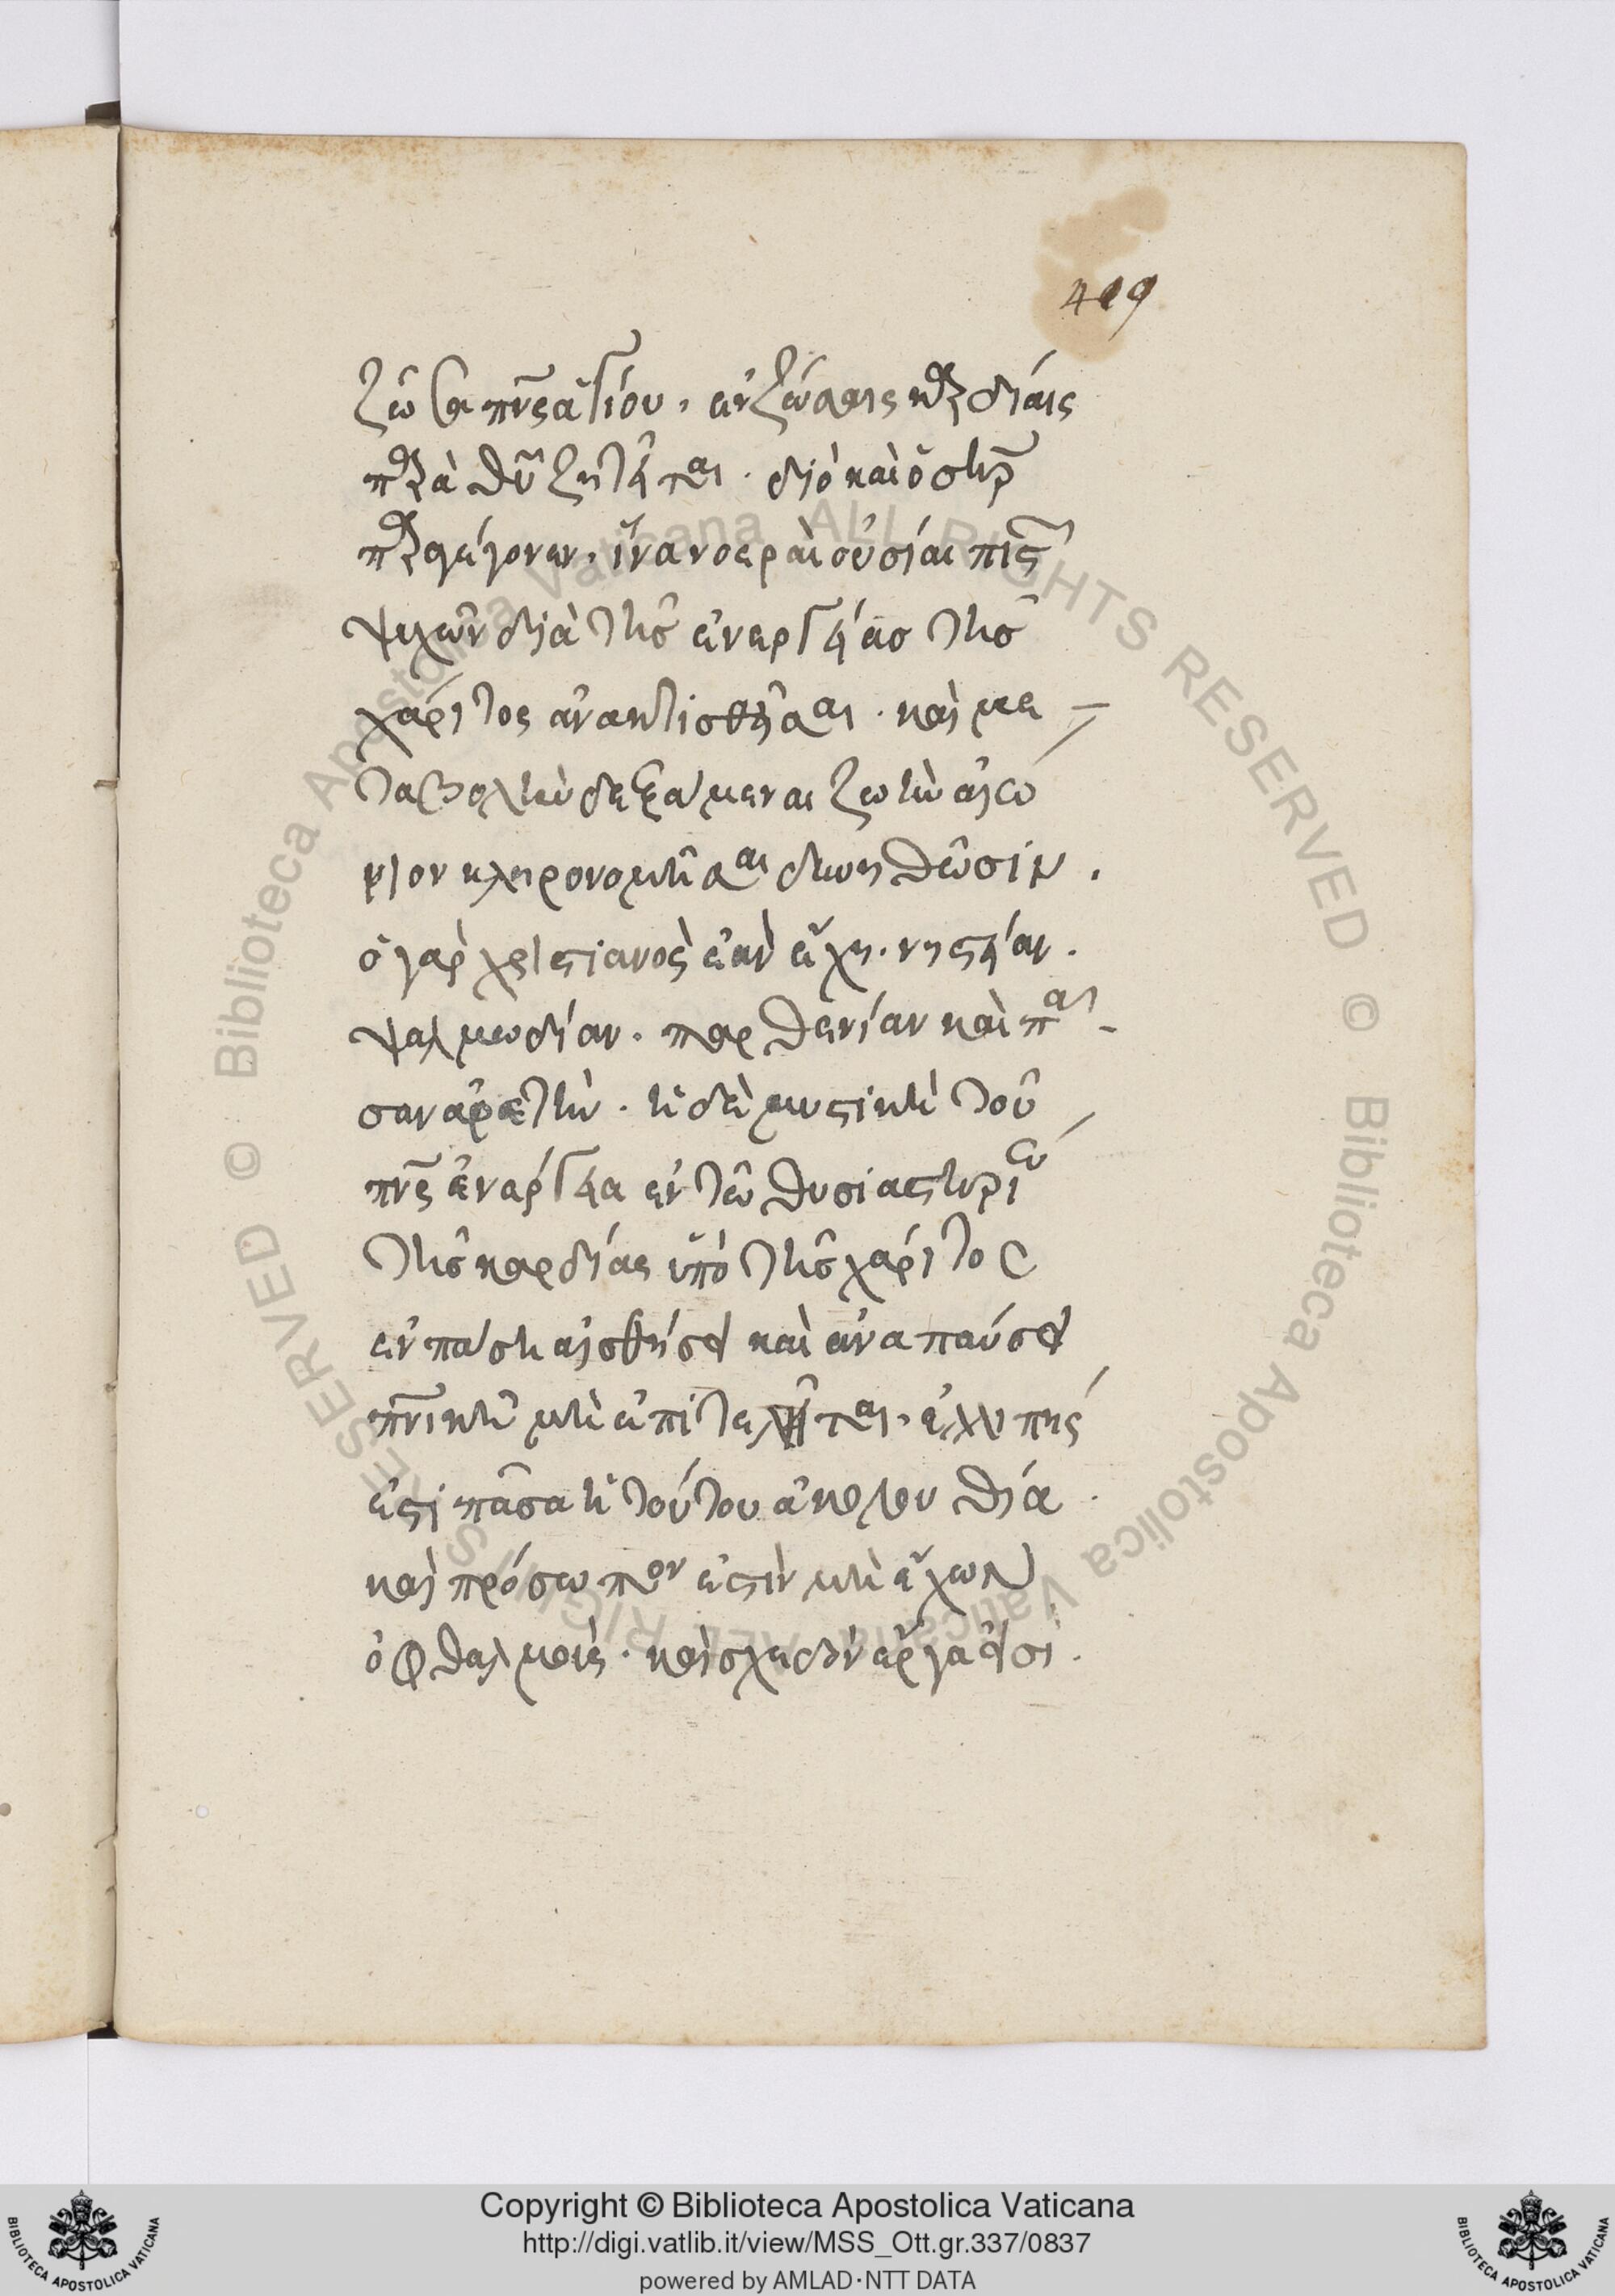 409
ζῶσα πνς ἁγίου, ἐν ζώσαις καρδίαις
παρὰ θῦ ζητεῖται. διὸ καὶ ὁ σηρ
παραγέγονεν, ἵνα νοεραὶ οὐσίαι πιστ
ψυχῶν διὰ τῆς ἐνεργείας τῆς
χάριτος ἀνακτισθῆναι. καὶ με
ταβολὴν δεξάμεναι ζωὴν αἰώ
νιον κληρονομῆσαι δυνηθῶσιν.
ὁ γὰρ χριστιανὸς ἐὰν ἔχη. νηστείαν.
ψαλμωδίαν. παρθενίαν καὶ πᾶ
σαν ἀρετὴν. ἡ δὲ μυστικὴ τοῦ
πνς ἐνέργεια ἐν τῶ θυσιαστηρίω
τῆς καρδίας ὑπὸ τῆς χάριτος
ἐν πάση αἰσθήσει καὶ ἀναπαύσει
πνικῆ μὴ ἐπιτελῆται, ἐλλιπής
ἐστι πᾶσα ἡ τούτου ἀκολουθία.
καὶ πρόσωπον ἐστὶν μὴ ἔχων
ὀφθαλμοὺς. καὶ σχεδὸν
Copyright © Biblioteca Apostolica Vaticana
http://digi.vatlib.it/view/MSS_Ott.gr.337/0837
powered by AMLAD·NTT DATA
BIBLIOTECA APOSTOLICA VATICANA
BIBLIOTECA APOSTOLICA VATICANA
© Biblioteca Apostolica Vaticana ALL RIGHTS RESERVED
© Biblioteca Apostolica Vaticana ALL RIGHTS RESERVED